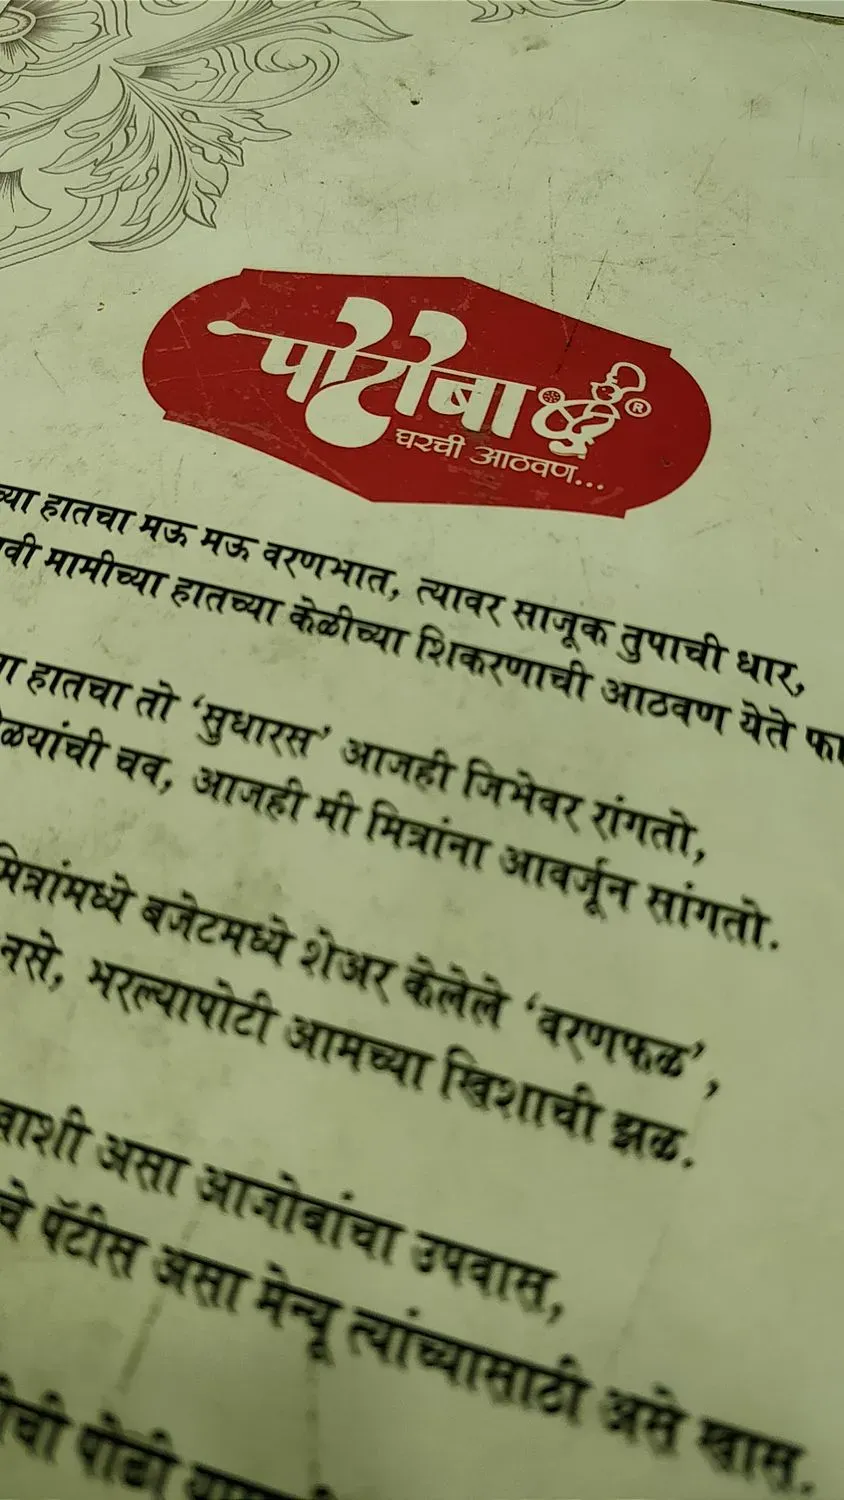 पोटोबा ®
घरची आठवण...
च्या हातचा मऊ मऊ वरणभात, त्यावर साजूक तुपाची धार,
वी मामीच्या हातच्या केळीच्या शिकरणाची आठवण येते फा
हातचा तो ‘सुधारस’ आजही जिभेवर रांगतो,
ळयांची चव, आजही मी मित्रांना आवर्जून सांगतो.
मित्रांमध्ये बजेटमध्ये शेअर केलेले ‘वरणफळ’,
नसे, भरल्यापोटी आमच्या खिशाची झळ.
असा आजोबांचा उपवास,
चे पॅटीस असा मेन्यू त्यांच्यासाठी असे खास.
ची पोळी